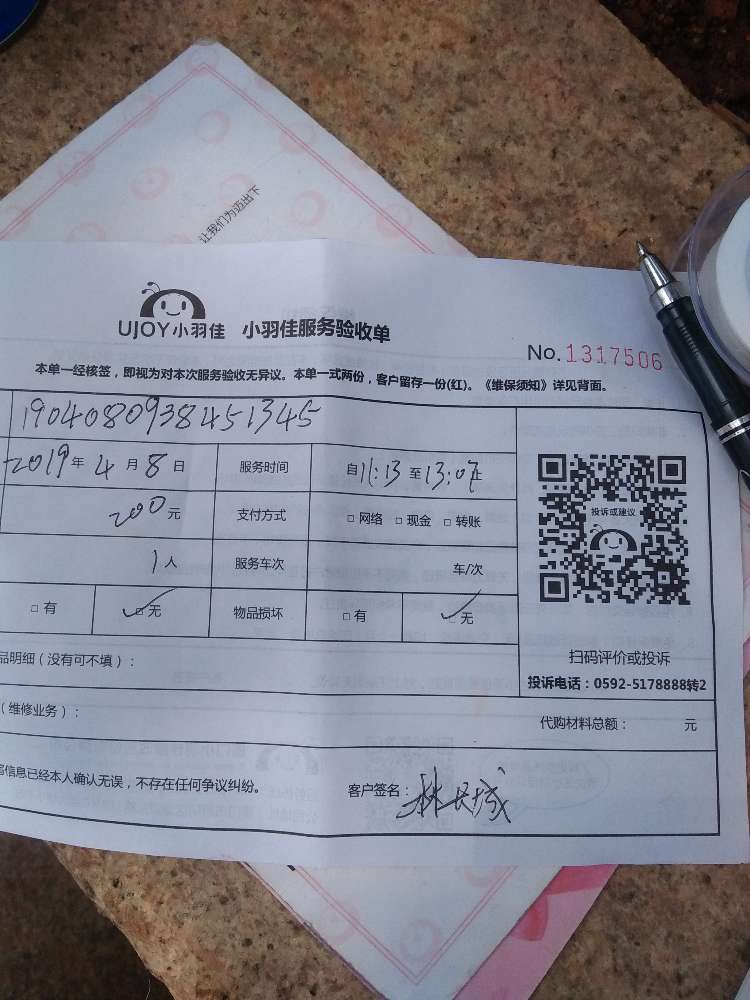 让我们为迈出下
UJOY小羽佳 小羽佳服务验收单
No.1317506
本单一经核签，即视为对本次服务验收无异议。本单一式两份，客户留存一份(红)。《维保须知》详见背面。
1904080938451345
2019年4月8日 服务时间 自11:13至13:07止
200元 支付方式 □网络 □现金 □转账
投诉或建议
1人 服务车次 车/次
□有 □无 物品损坏 □有 □无
扫码评价或投诉
品明细（没有可不填）：
投诉电话：0592-5178888转2
（维修业务）：
代购材料总额： 元
信息已经本人确认无误，不存在任何争议纠纷。
客户签名：林长城